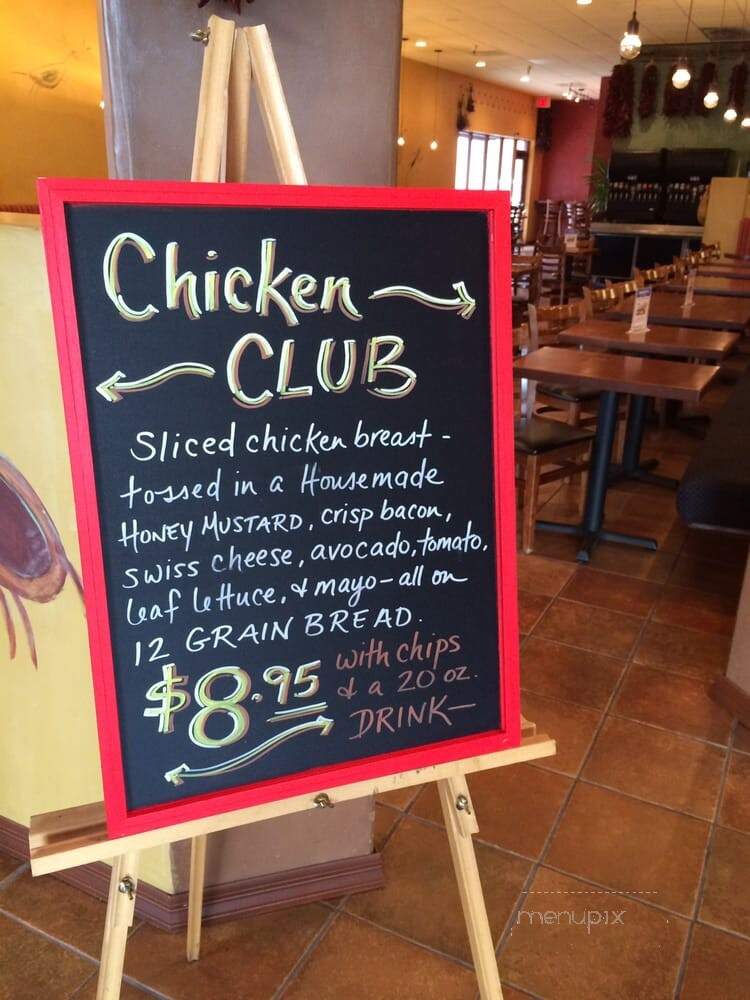 Chicken
CLUB
Sliced chicken breast -
tossed in a Housemade
HONEY MUSTARD, crisp bacon,
swiss cheese, avocado, tomato,
leaf lettuce, & mayo - all on
12 GRAIN BREAD.
$8.95 with chips
& a 20 oz.
DRINK—
menupix